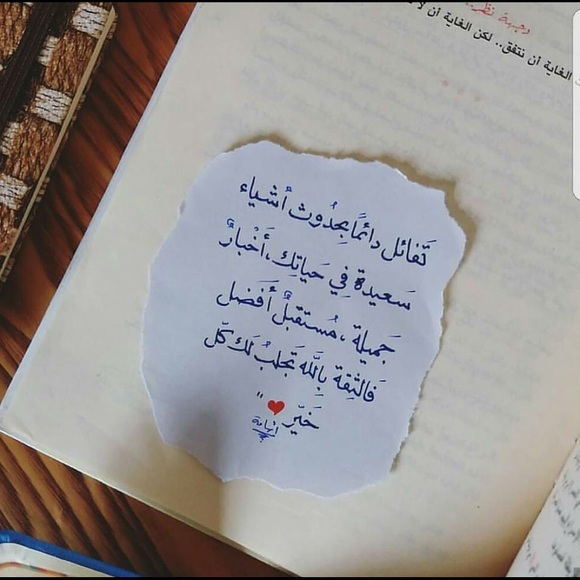 وجهة نظر..
الغاية أن نتفق.. لكن الغاية أن لا
تَفائل دائمًا بِحُدوث أشياء
سَعيدة فِي حَياتِك، أَخْبارٌ
جَميلة، مُستقبلٌ أَفضل
فَالثِقة بِاللّٰه تَجلبُ لَك كلّ
خَيّر ❤️"